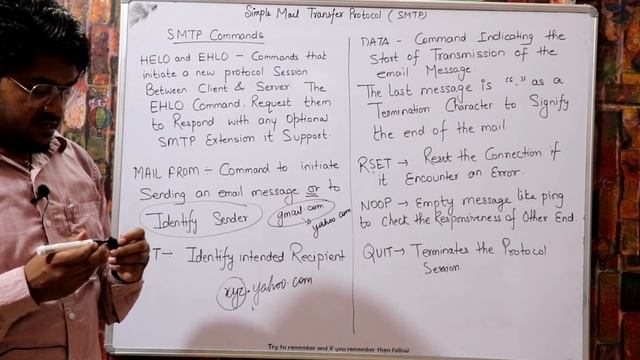 Simple Mail Transfer Protocol (SMTP)
SMTP Commands
HELO and EHLO - Commands that
initiate a new protocol Session
Between Client & Server The
EHLO Command. Request them
to Respond with any Optional
SMTP Extension it Support.
MAIL FROM :- Command to initiate
Sending an email message or to
Identify Sender
gmail.com
yahoo.com
T :- Identify intended Recipient
xyz.yahoo.com
DATA - Command Indicating the
Start of Transmission of the
email Message
The Last message is "." as a
Termination Character to Signify
the end of the mail.
RSET → Reset the Connection if
it Encounter an Error.
NOOP → Empty message like ping
to Check the Responsiveness of Other End.
QUIT → Terminates the Protocol
Session.
Try to remember and if you remember then follow